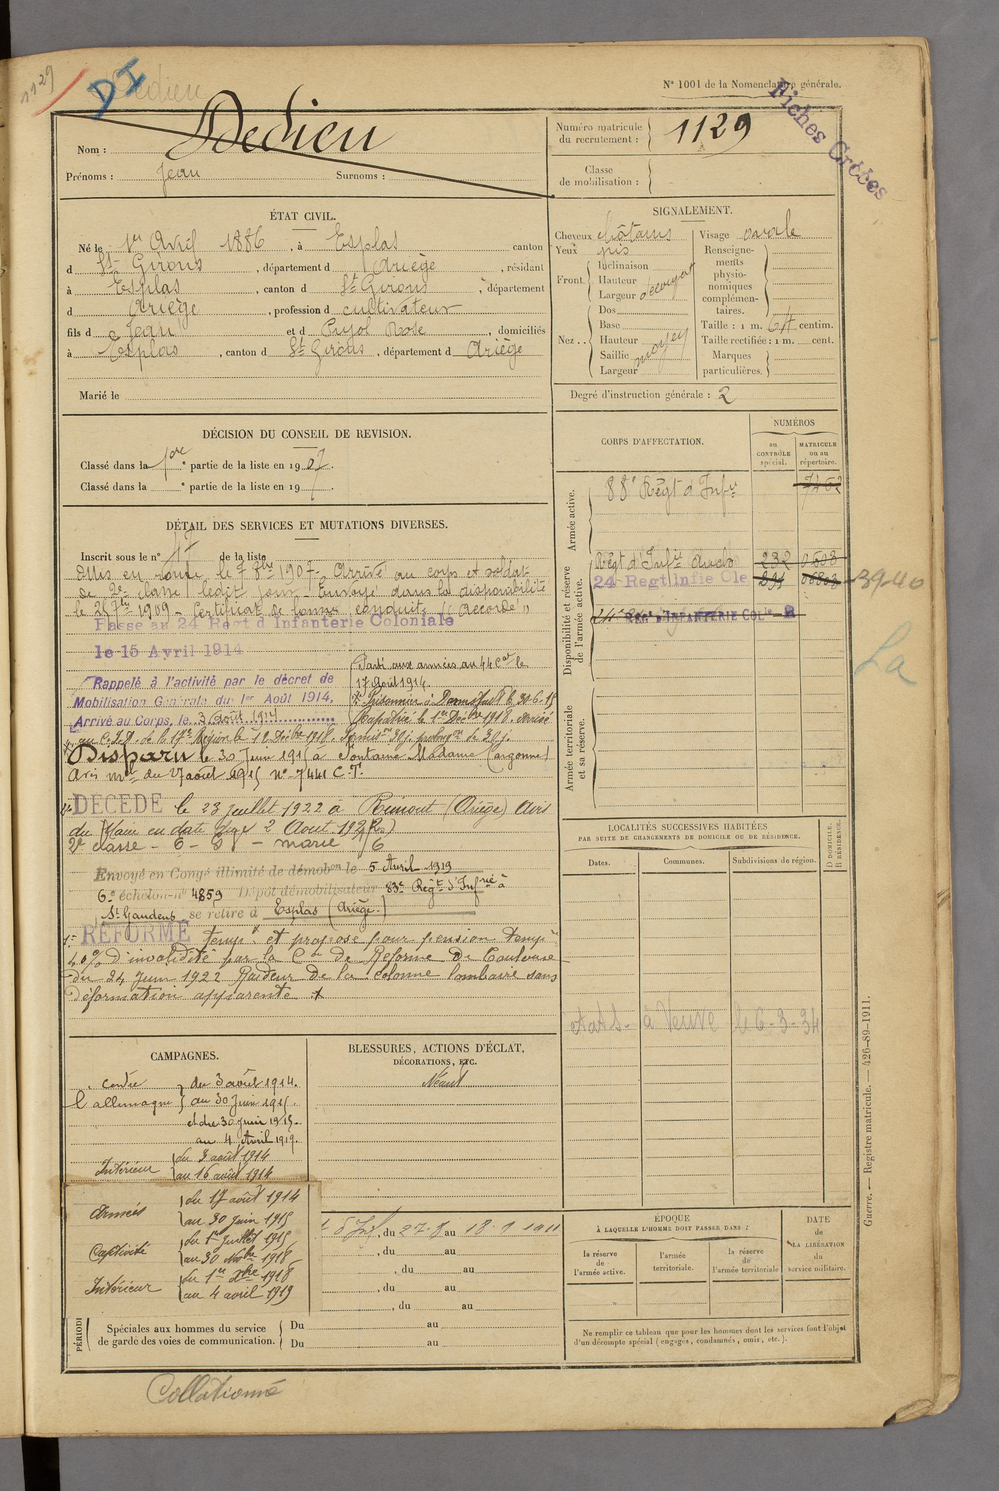 1129
DI
Dedieu
N° 1001 de la Nomenclature générale.
Fiches Créées
Nom : Dedieu
Prénoms : Jean Surnoms :
Numéro matricule du recrutement : 1129
Classe de mobilisation :
ÉTAT CIVIL.
Né le 1er Avril 1886, à Esplas canton
d St Girons, département d Ariège, résidant
à Esplas, canton d St Girons, département
d Ariège, profession d cultivateur
fils d Jean et d Pujol Rose, domiciliés
à Esplas, canton d St Girons, département d Ariège
Marié le
SIGNALEMENT.
Cheveux châtains Visage ovale
Yeux gris
Front. Inclinaison
Hauteur
Largeur
découvert
Nez .. Dos
Base
Hauteur
Saillie
Largeur
moyen
Renseignements physionomiques complémentaires.
Taille : 1 m. 64 centim.
Taille rectifiée : 1 m. cent.
Marques particulières.
Degré d'instruction générale : 2
DÉCISION DU CONSEIL DE REVISION.
Classé dans la 1ere partie de la liste en 1907.
Classé dans la e partie de la liste en 19 .
CORPS D'AFFECTATION.
NUMÉROS
au CONTRÔLE spécial.
MATRICULE ou au répertoire.
Armée active.
88e Régt d'Infie
Disponibilité et réserve de l'armée active.
Régt d'Infie 232
24 Regt Infie Cle
REGt D'INFANTERIE COLle
39-40
La
Armée territoriale et sa réserve.
DÉTAIL DES SERVICES ET MUTATIONS DIVERSES.
Inscrit sous le n° 47 de la liste
Mis en route le 7 8bre 1907. Arrivé au corps et soldat
de 2e classe ledit jour. Envoyé dans la disponibilité
le 25 7bre 1909. Certificat de bonne conduite "Accordé"
Passé au 24 Regt d Infanterie Coloniale
le 15 Avril 1914
Rappelé à l'activité par le décret de
Mobilisation Générale du 1er Août 1914,
Arrivé au Corps, le 3 Août 1914
Parti aux armées au 44 Cal le
17 Août 1914
Prisonnier à Darmstadt le 30.6.15
Rapatrié le 1er Décbre 1918. arrivé
au C.I.R. de la 17e Région le 12 Décbre 1918.
Disparu le 30 Juin 1915 à Fontaine Madame (argonne)
Avis mel du 27 août 1915 N° 7441 C.T.
DECEDE le 23 Juillet 1922 à Rimont (Ariège) Avis
du Maire en date du 2 Août 1922
2e classe
Envoyé en Congé illimité de démobon le 5 Avril 1919
6e échelon n° 4859 Dépôt démobilisateur 83e Régt d'Infie à
St Gaudens se retire à Esplas (Ariège.)
REFORMÉ tempre et proposé pour pension tempre
40% d'invalidité par la Con de Réforme de Toulouse
du 24 Juin 1922 Raideur de la colonne lombaire sans
déformation apparente
LOCALITÉS SUCCESSIVES HABITÉES
PAR SUITE DE CHANGEMENTS DE DOMICILE OU DE RÉSIDENCE.
Dates.
Communes.
Subdivisions de région.
D DOMICILE.
R RÉSIDENCE.
à Veuve le 6-3-34
CAMPAGNES.
contre l'allemagne
du 3 août 1914.
au 30 Juin 1915.
et du 30 Juin 1915.
au 4 Avril 1919.
Intérieur
du 3 août 1914
au 16 août 1914
Armées
du 17 août 1914
au 30 Juin 1915
Captivité
du 1er Juillet 1915
au 30 Novbre 1918
Intérieur
du 1er Xbre 1918
au 4 avril 1919
BLESSURES, ACTIONS D'ÉCLAT,
DÉCORATIONS, ETC.
Néant
, du 27.8 au 18.9 1911
, du au
, du au
, du au
, du au
PÉRIODI
Spéciales aux hommes du service
de garde des voies de communication.
Du au
Du au
ÉPOQUE
À LAQUELLE L'HOMME DOIT PASSER DANS :
la réserve de l'armée active.
l'armée territoriale.
la réserve de l'armée territoriale
DATE
de
LA LIBÉRATION
du
service militaire.
Ne remplir ce tableau que pour les hommes dont les services font l'objet
d'un décompte spécial (engagés, condamnés, omis, etc.).
Guerre. — Registre matricule. — 426-89-1911.
Collationné